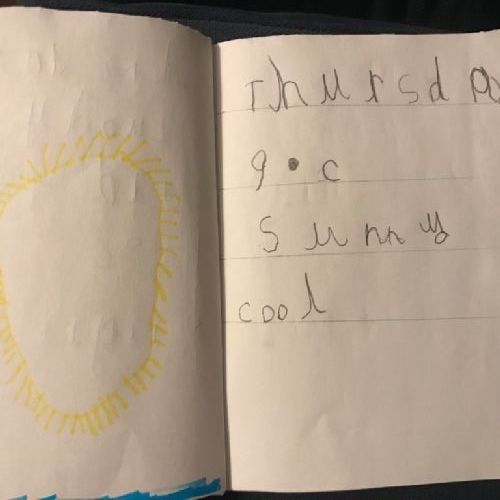 Thursda
9•c
sunny
cool